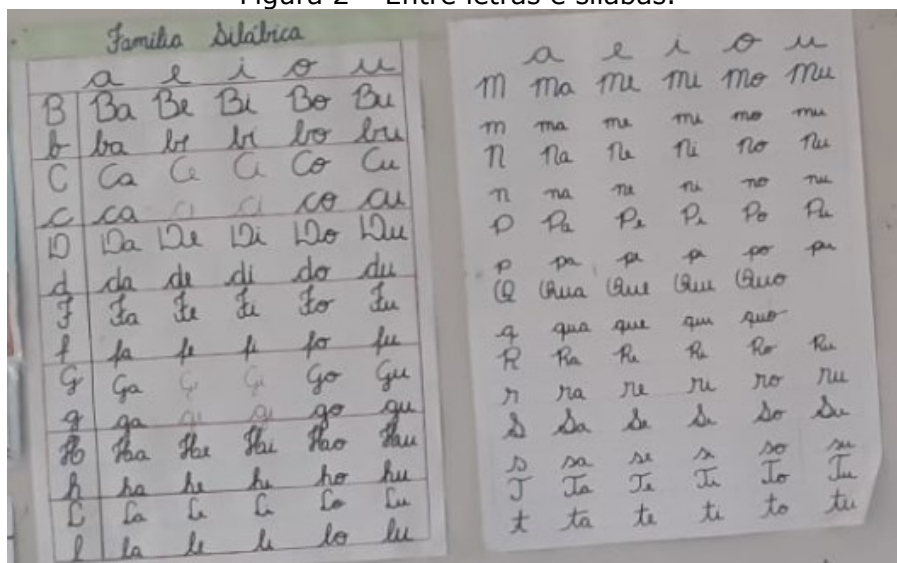 Figura 2 – Entre letras e sílabas.
Família Silábica
a e i o u
B Ba Be Bi Bo Bu
b ba be bi bo bu
C Ca Ce Ci Co Cu
c ca ce ci co cu
D Da De Di Do Du
d da de di do du
F Fa Fe Fi Fo Fu
f fa fe fi fo fu
G Ga Ge Gi Go Gu
g ga ge gi go gu
H Ha He Hi Ho Hu
h ha he hi ho hu
L La Le Li Lo Lu
l la le li lo lu
a e i o u
M Ma Me Mi Mo Mu
m ma me mi mo mu
N Na Ne Ni No Nu
n na ne ni no nu
P Pa Pe Pi Po Pu
p pa pe pi po pu
Q Qua Que Qui Quo
q qua que qui quo
R Ra Re Ri Ro Ru
r ra re ri ro ru
S Sa Se Si So Su
s sa se si so su
T Ta Te Ti To Tu
t ta te ti to tu